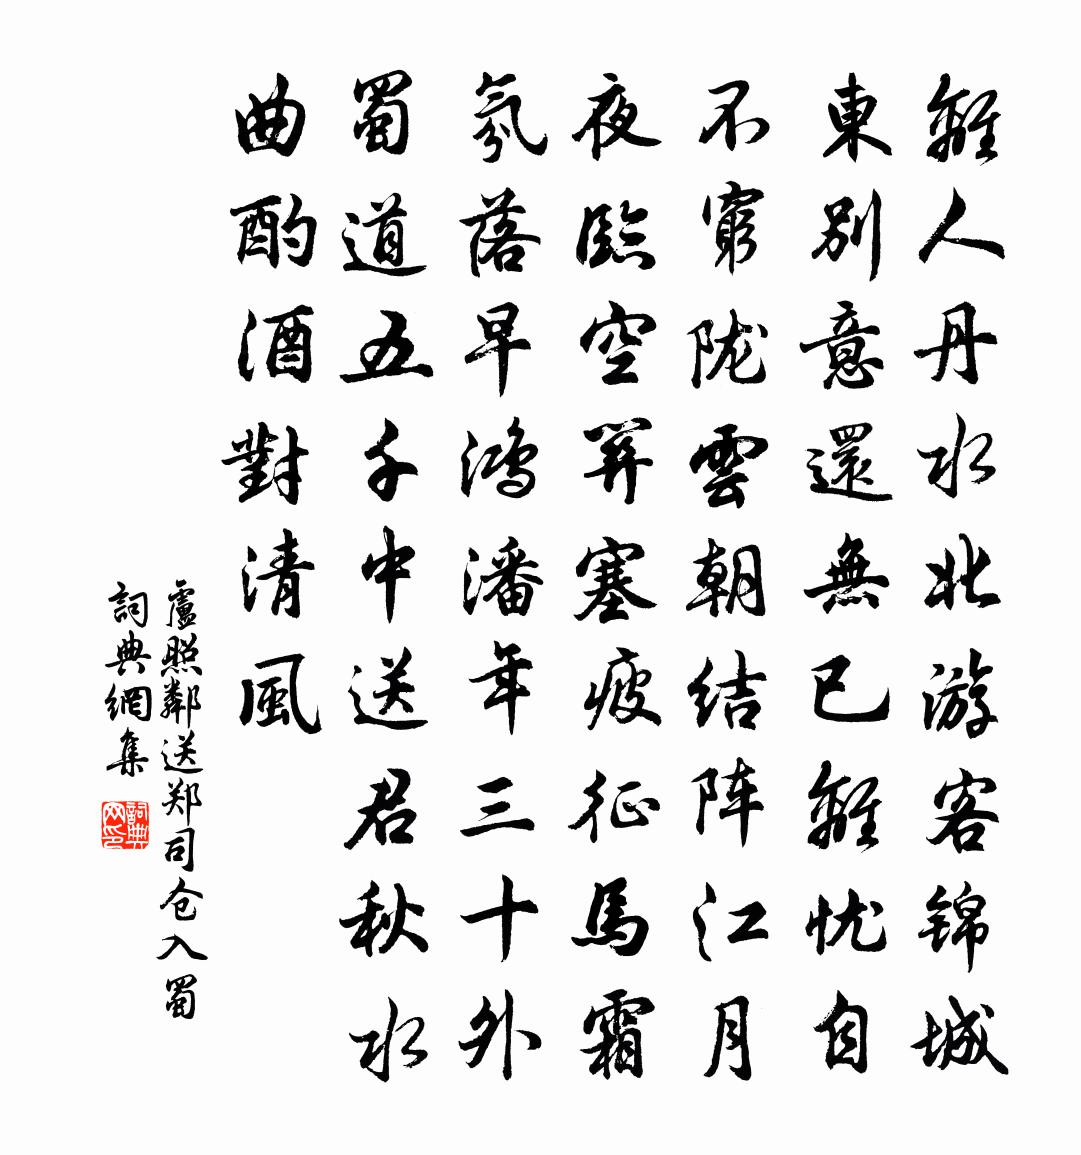 離人丹水北游客锦城
東別意還無已離忧自
不窮陇雲朝结阵江月
夜臨空關塞疲征馬霜
氛落早鴻潘年三十外
蜀道五千中送君秋水
曲酌酒對清風
盧照鄰送郑司仓入蜀
詞典網集
詞典
网印